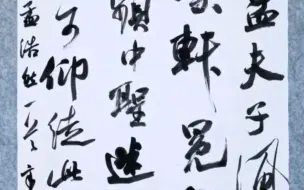 孟夫子風
軒冕
頻中聖迷
可仰徒此
孟浩然